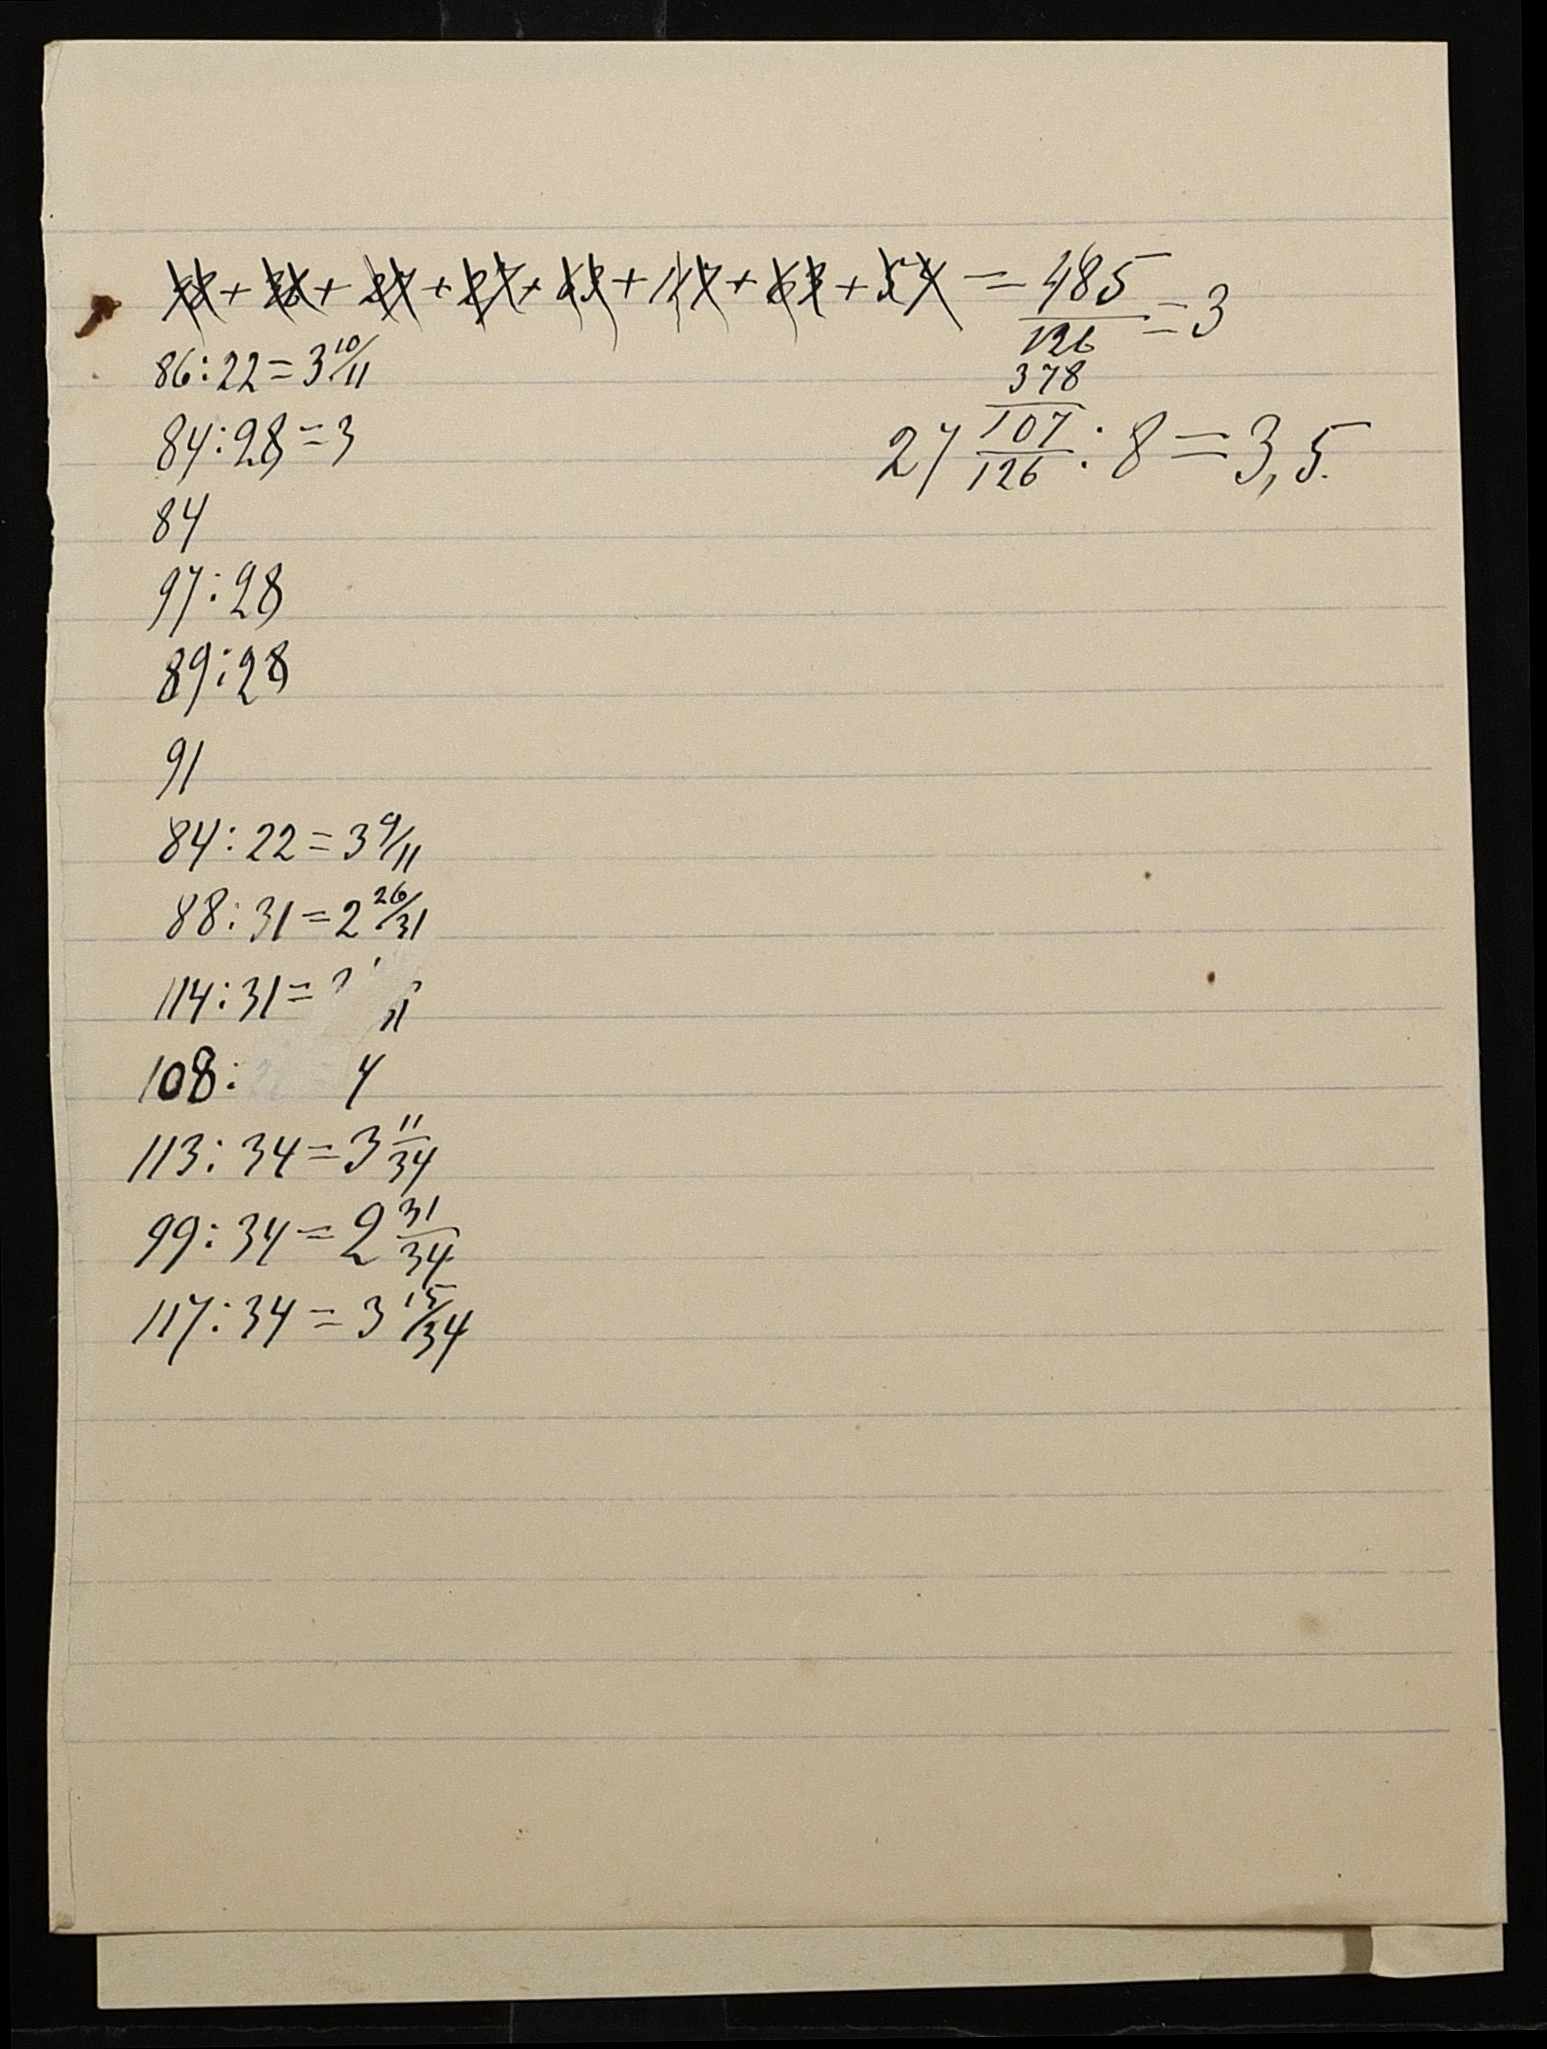 + + + + + + + = 485/126 = 3
378
86:22=3 10/11
27 107/126 : 8 = 3,5.
84:28=3
84
97:28
89:28
91
84:22=3 9/11
88:31=2 26/31
114:31=
108: 4
113:34=3 11/34
99:34=2 31/34
117:34=3 15/34